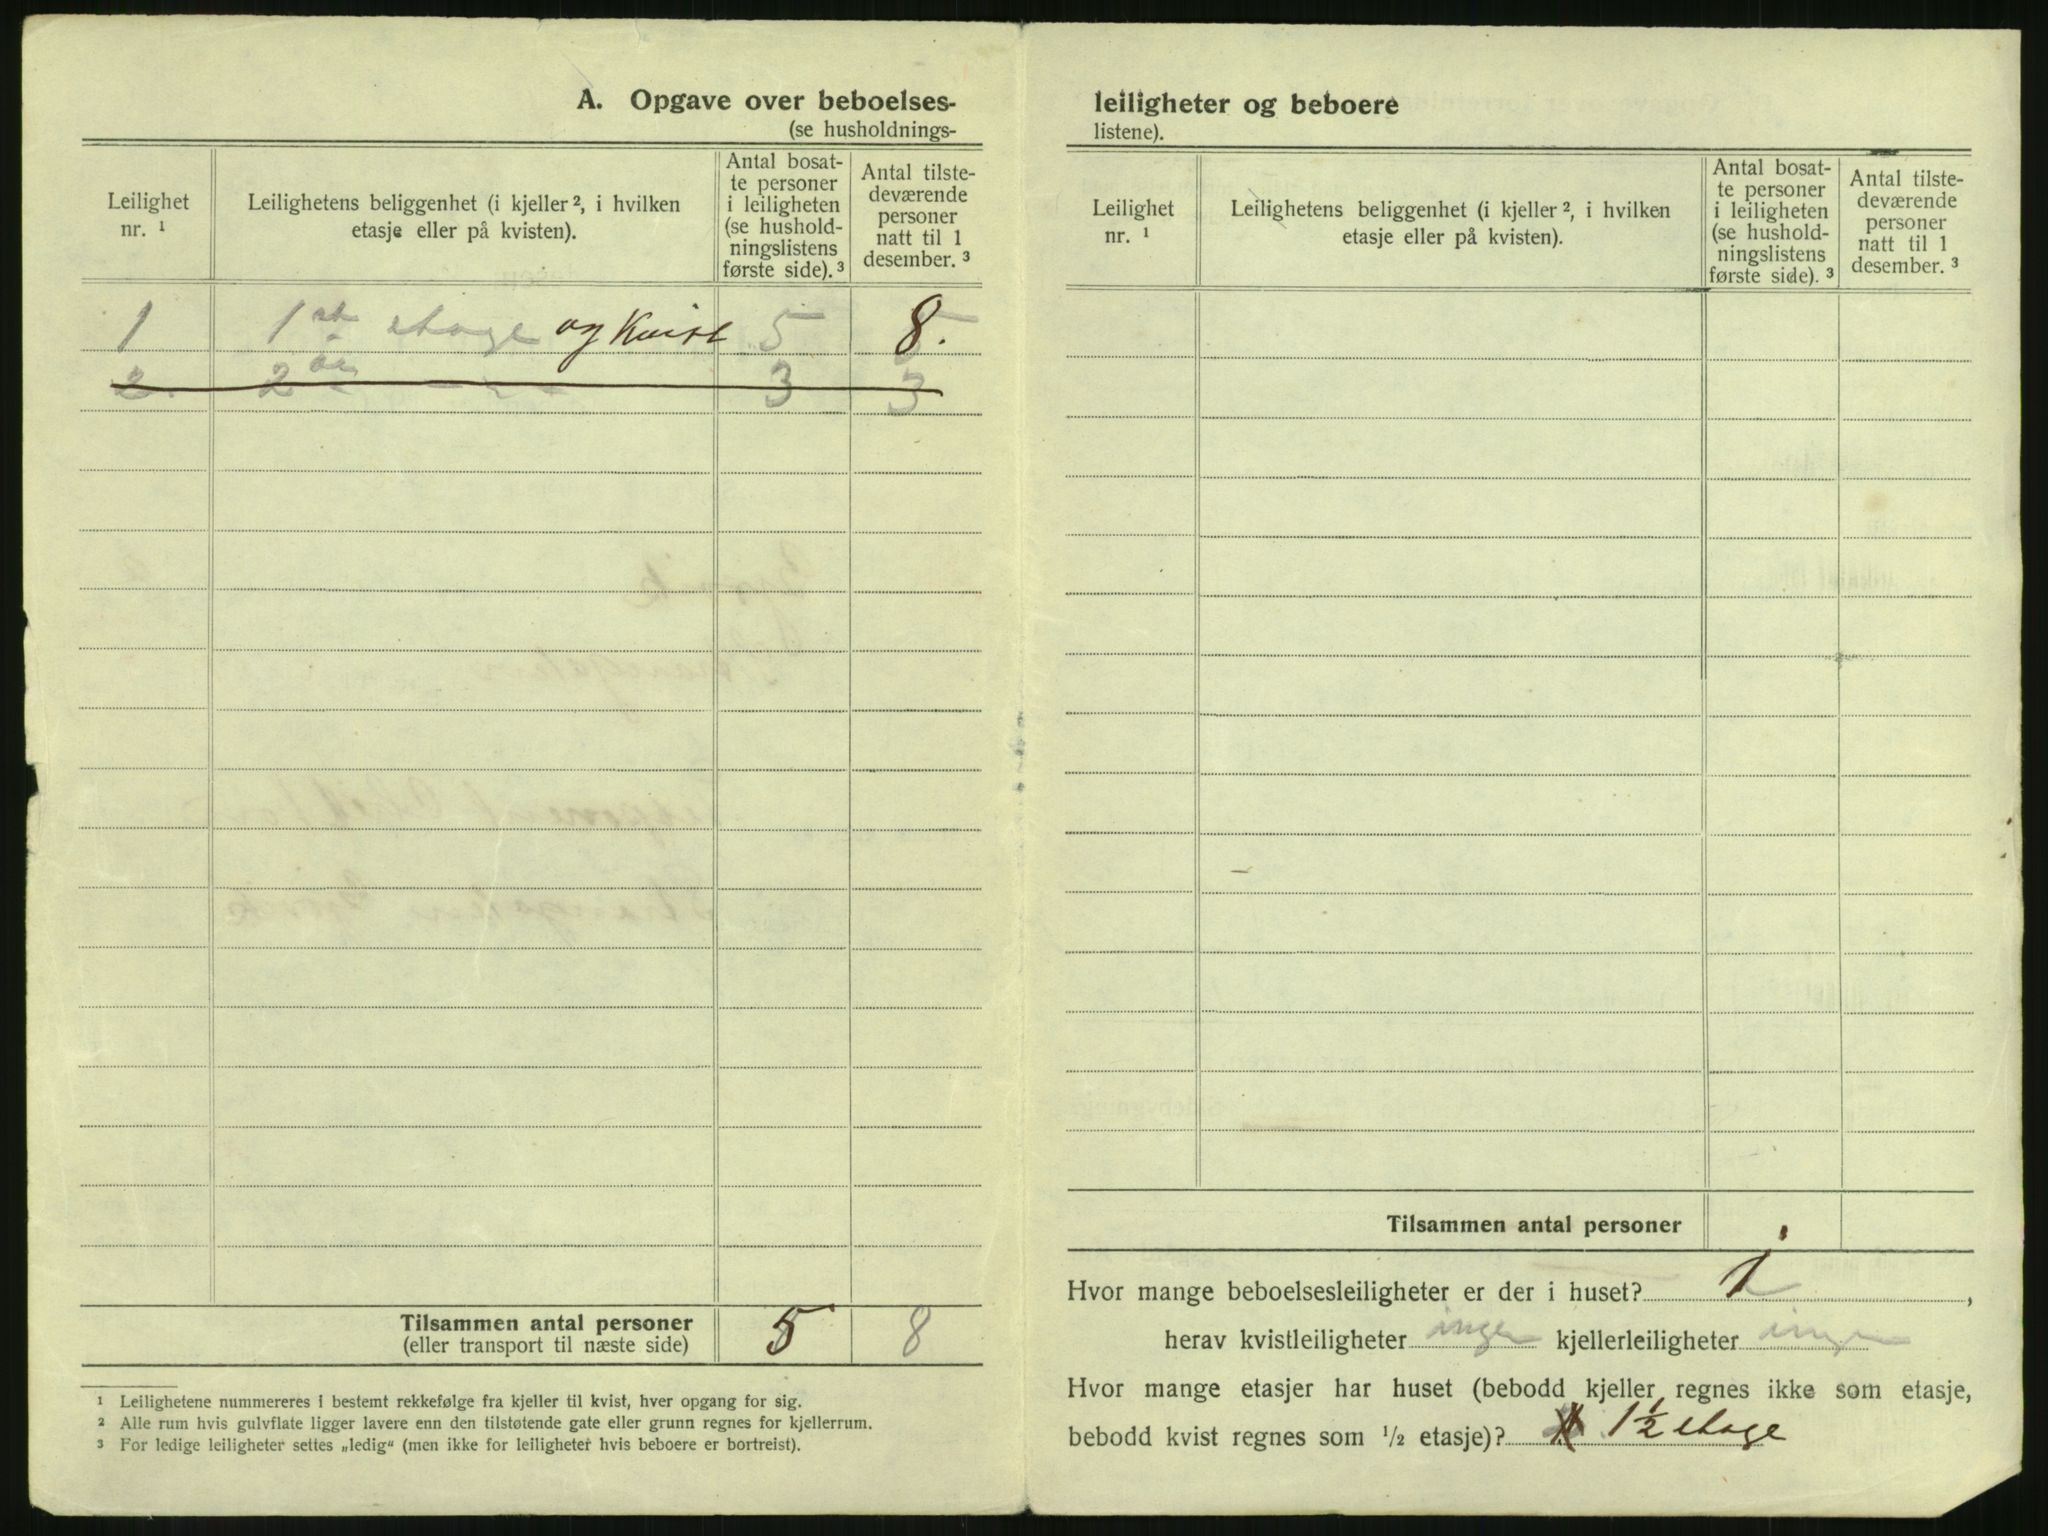 A. Opgave over beboelses-
(se husholdnings-
Leilighet nr. ¹
Leilighetens beliggenhet (i kjeller ², i hvilken etasje eller på kvisten).
Antal bosat-
te personer
i leiligheten
(se hushold-
ningslistens
første side). ³
Antal tilste-
deværende
personer
natt til 1
desember. ³
1 1ste etage og Kvist 5 8.
2. 2den 3 3
Tilsammen antal personer 5 8
(eller transport til næste side)
¹ Leilighetene nummereres i bestemt rekkefølge fra kjeller til kvist, hver opgang for sig.
² Alle rum hvis gulvflate ligger lavere enn den tilstøtende gate eller grunn regnes for kjellerrum.
³ For ledige leiligheter settes „ledig“ (men ikke for leiligheter hvis beboere er bortreist).
leiligheter og beboere
listene).
Leilighet nr. ¹
Leilighetens beliggenhet (i kjeller ², i hvilken etasje eller på kvisten).
Antal bosat-
te personer
i leiligheten
(se hushold-
ningslistens
første side). ³
Antal tilste-
deværende
personer
natt til 1
desember. ³
Tilsammen antal personer
Hvor mange beboelsesleiligheter er der i huset? 1,
herav kvistleiligheter ingen kjellerleiligheter ingen
Hvor mange etasjer har huset (bebodd kjeller regnes ikke som etasje,
bebodd kvist regnes som ½ etasje)? 1½ etage